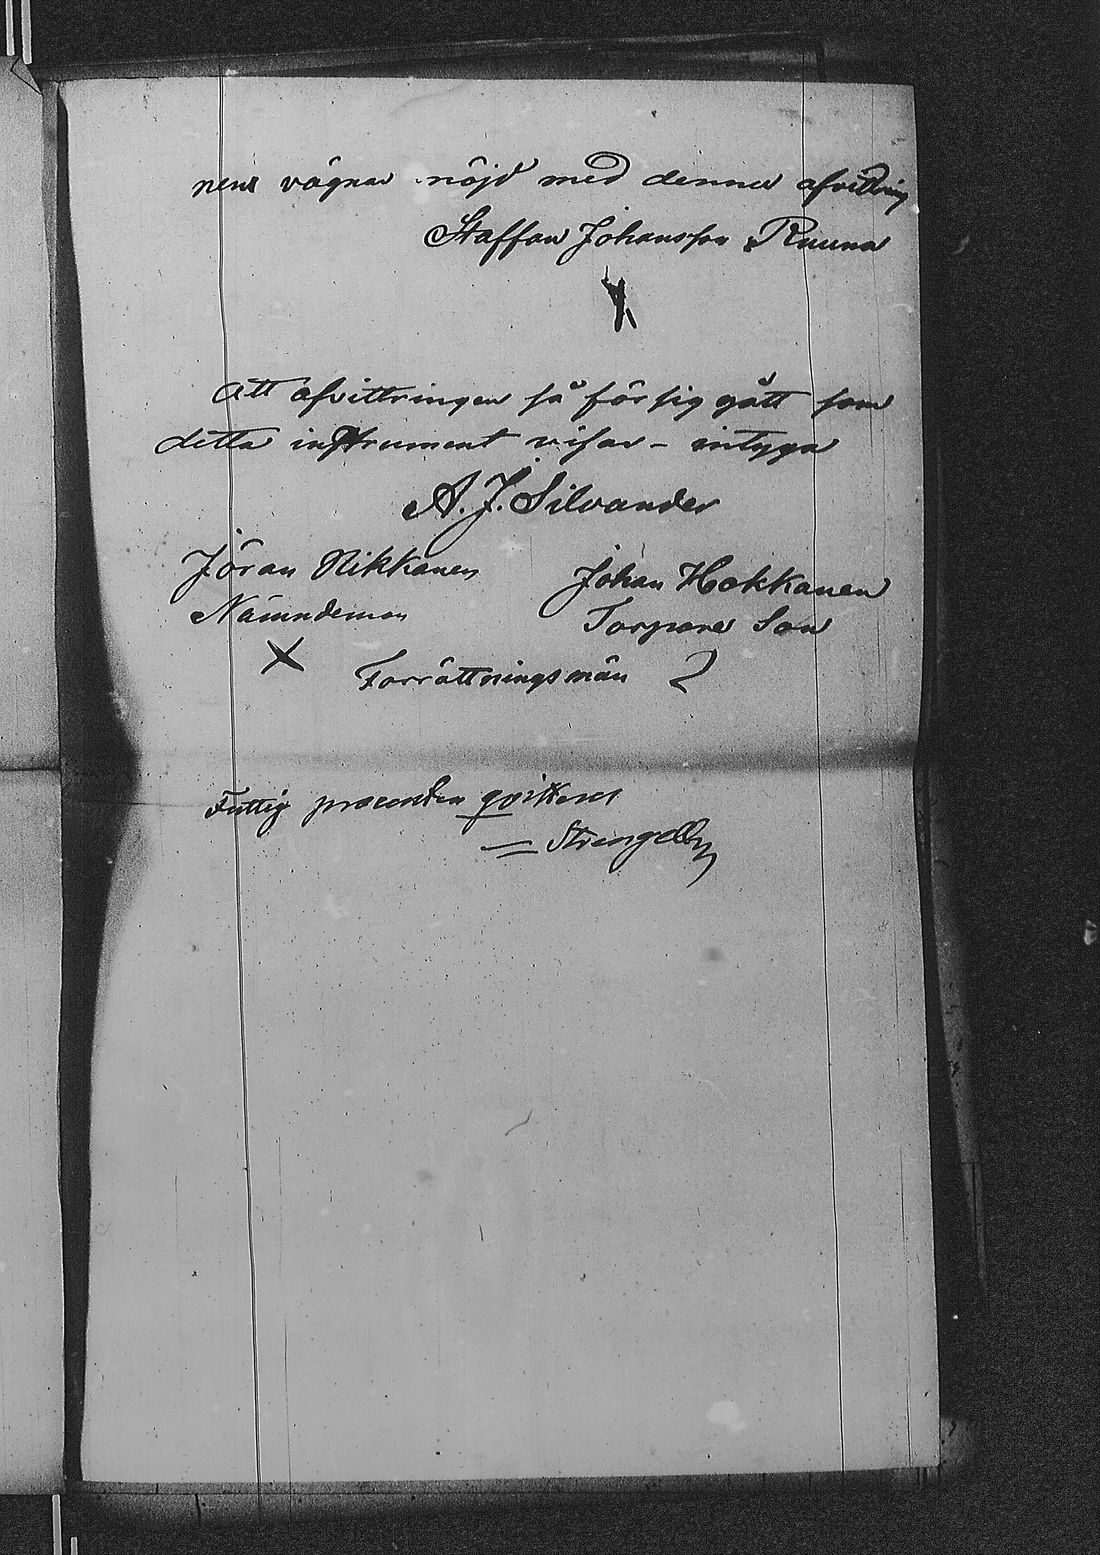 nens vägnar nöjd med denna afvittring
Staffan Johansson Ruuna
att afvittringen så för sig gått som
detta instrument visar – intyga
A. J. Silvander
Jöran Nikkanen Johan Hokkanen
Nämndeman Torpare Son
Förrättningsmän
Fattig procenten qvitteras
Strengell